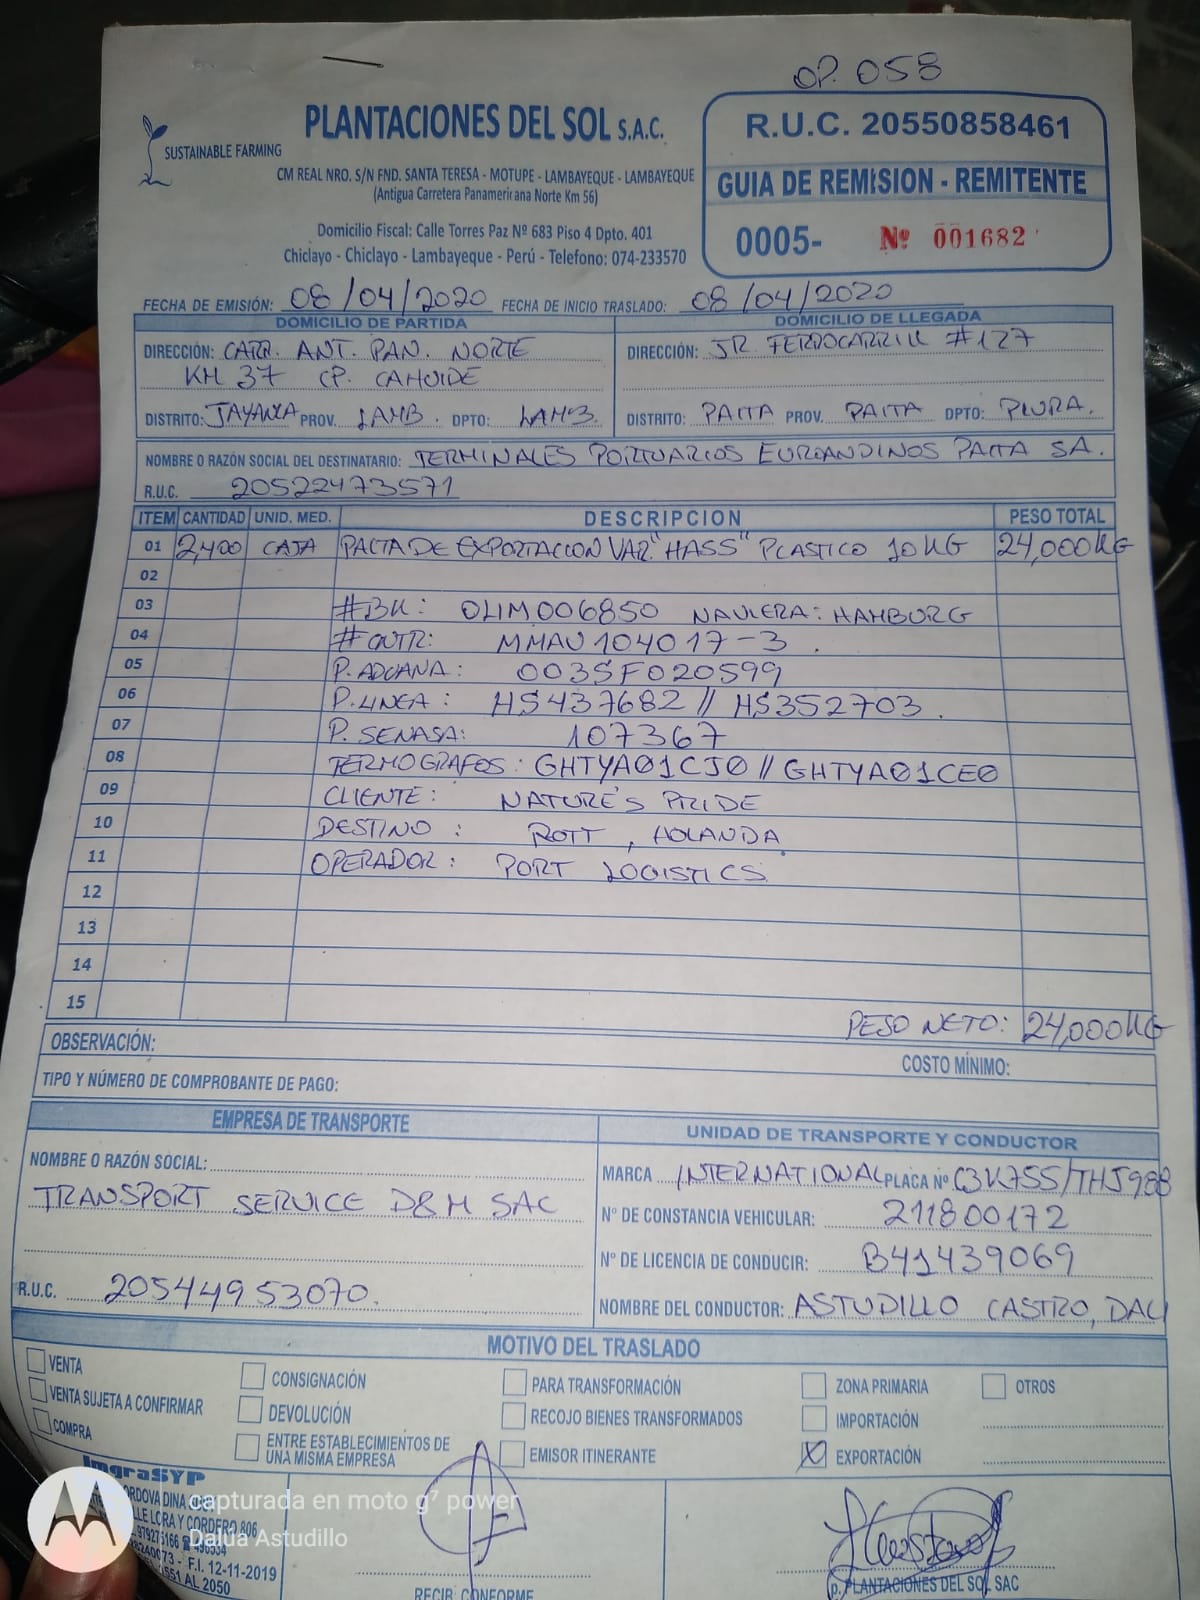 OP. 058
PLANTACIONES DEL SOL S.A.C.
SUSTAINABLE FARMING
CM REAL NRO. S/N FND. SANTA TERESA - MOTUPE - LAMBAYEQUE - LAMBAYEQUE
(Antigua Carretera Panamericana Norte Km 56)
Domicilio Fiscal: Calle Torres Paz Nº 683 Piso 4 Dpto. 401
Chiclayo - Chiclayo - Lambayeque - Perú - Telefono: 074-233570
R.U.C. 20550858461
GUIA DE REMISION - REMITENTE
0005- Nº 001682
FECHA DE EMISIÓN: 08/04/2020 FECHA DE INICIO TRASLADO: 08/04/2020
DOMICILIO DE PARTIDA
DIRECCIÓN: CARR. ANT. PAN. NORTE
KM 37 CP. CAHUIDE
DISTRITO: JAYANCA PROV. LAMB. DPTO: LAMB.
DOMICILIO DE LLEGADA
DIRECCIÓN: JR. FERROCARRIL #127
DISTRITO: PAITA PROV. PAITA DPTO: PIURA.
NOMBRE O RAZÓN SOCIAL DEL DESTINATARIO: TERMINALES PORTUARIOS EUROANDINOS PAITA SA.
R.U.C. 20522473571
ITEM CANTIDAD UNID. MED. DESCRIPCION PESO TOTAL
01 2,400 CAJA PALTA DE EXPORTACION VAR. "HASS" PLASTICO 10KG 24,000KG
02
03 #BK: OLIM006850 NAVIERA: HAMBURG
04 #CNTR: MMAU104017-3.
05 P. ADUANA: 003SF020599
06 P. LINEA: HS437682 // HS352703.
07 P. SENASA: 107367
08 TERMOGRAFOS: GHTYA01CJ0 // GHTYA01CE0
09 CLIENTE: NATURE'S PRIDE
10 DESTINO: ROTT, HOLANDA.
11 OPERADOR: PORT LOGISTICS
12
13
14
15
PESO NETO: 24,000KG
OBSERVACIÓN:
COSTO MÍNIMO:
TIPO Y NÚMERO DE COMPROBANTE DE PAGO:
EMPRESA DE TRANSPORTE
NOMBRE O RAZÓN SOCIAL:
TRANSPORT SERVICE D&M SAC
R.U.C. 20544953070.
UNIDAD DE TRANSPORTE Y CONDUCTOR
MARCA INTERNATIONAL PLACA Nº C3K755/THJ988
Nº DE CONSTANCIA VEHICULAR: 211800172
Nº DE LICENCIA DE CONDUCIR: B41439069
NOMBRE DEL CONDUCTOR: ASTUDILLO CASTRO, DAL
MOTIVO DEL TRASLADO
VENTA
VENTA SUJETA A CONFIRMAR
COMPRA
CONSIGNACIÓN
DEVOLUCIÓN
ENTRE ESTABLECIMIENTOS DE
UNA MISMA EMPRESA
PARA TRANSFORMACIÓN
RECOJO BIENES TRANSFORMADOS
EMISOR ITINERANTE
ZONA PRIMARIA
IMPORTACIÓN
X EXPORTACIÓN
OTROS
ImgraSYP
CORDOVA DINA
LORA Y CORDERO 806
F.I. 12-11-2019
AL 2050
capturada en moto g⁷ power
Dalúa Astudillo
RECIBI CONFORME
p. PLANTACIONES DEL SOL SAC